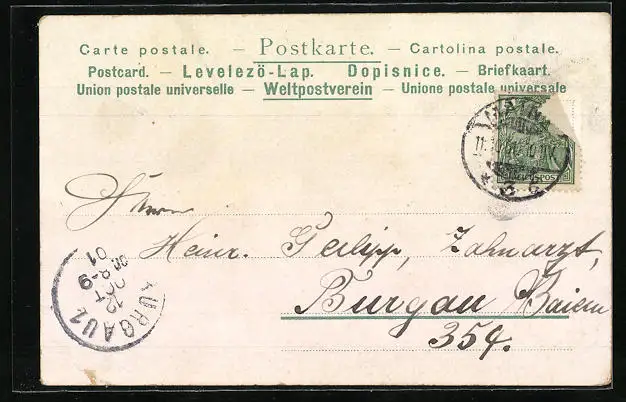 Carte postale. — Postkarte. — Cartolina postale.
Postcard. — Levelezö-Lap. Dopisnice. — Briefkaart.
Union postale universelle — Weltpostverein — Unione postale universale
Herrn
Heinr. Zahnarzt,
Burgau Baiern
354.
BURGAU 2
12
OCT
8-9
01